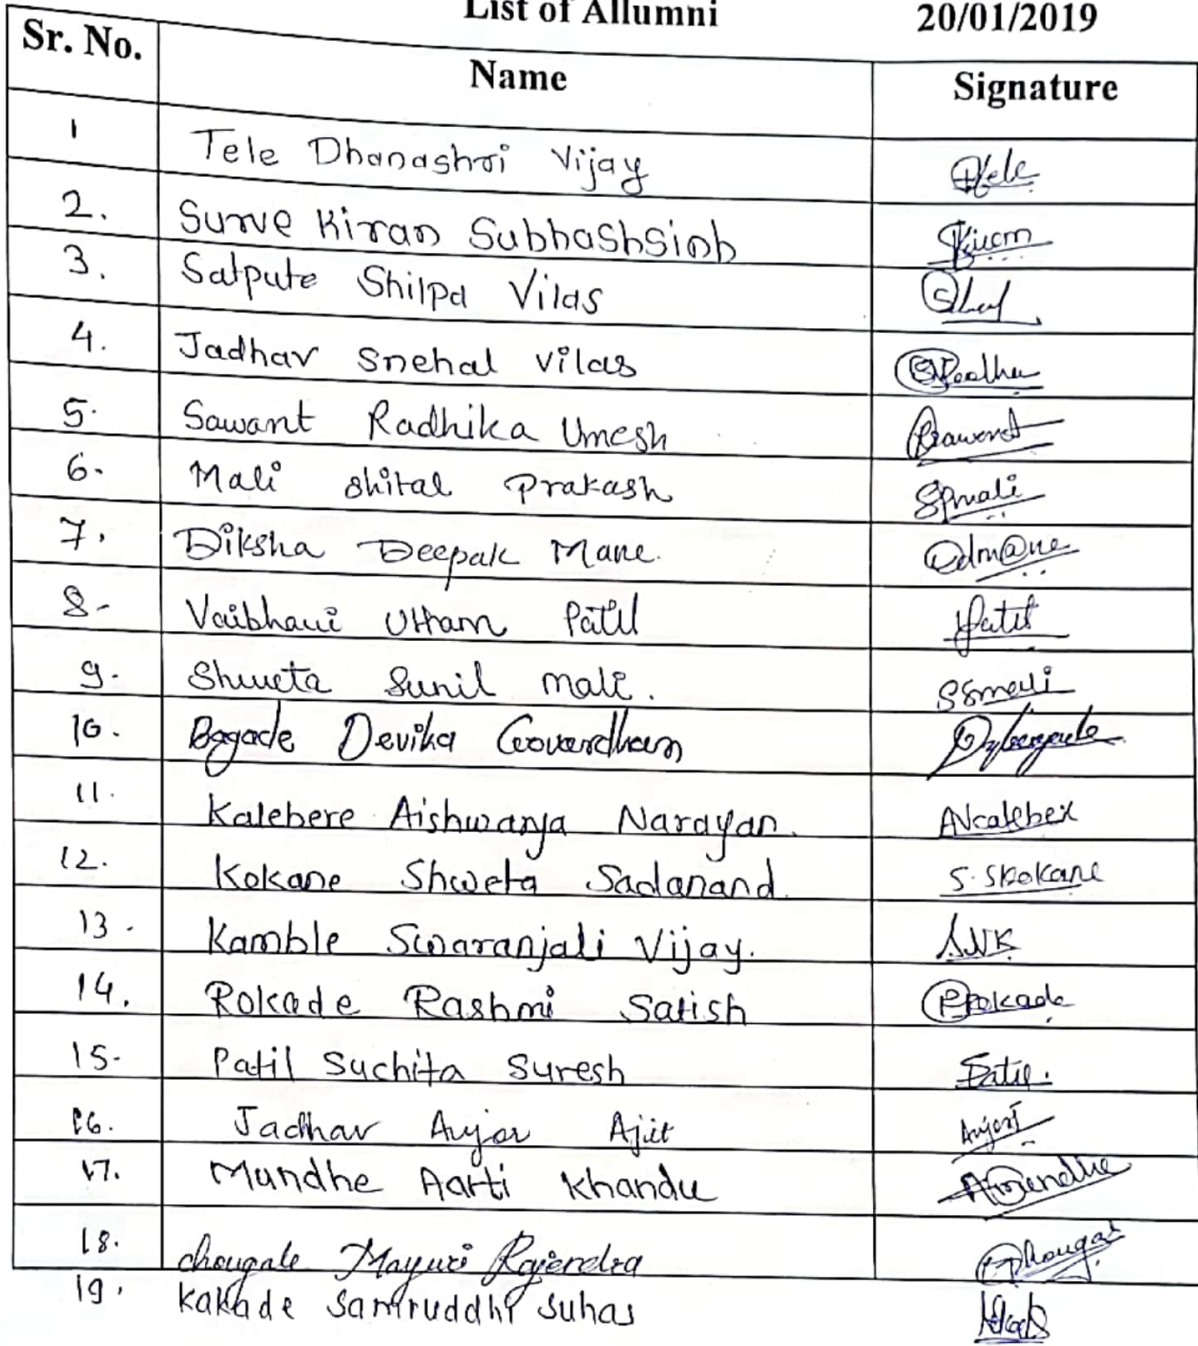 List of Allumni 20/01/2019
Sr. No. Name Signature
1 Tele Dhanashri Vijay Tele
2. Surve Kiran Subhashsinh Kiran
3. Satpute Shilpa Vilas
4. Jadhav Snehal Vilas
5. Sawant Radhika Umesh Rsawant
6. Mali Shital Prakash Spmali
7. Diksha Deepak Mane. Ddm@ne
8- Vaibhavi Uttam Patil Patil
9. Shweta Sunil Mali. SSmali
10. Bagade Devika Govardhan
11. Kalebere Aishwarya Narayan.
12. Kokane Shweta Sadanand S.Skokane
13. Kamble Swaranjali Vijay. SVK
14. Rokade Rashmi Satish Rokade
15- Patil Suchita Suresh Patil.
16. Jadhav Ajit
17. Mundhe Aarti Khandu
18. Chougale Mayuri Rajendra
19. Kakade Samruddhi Suhas